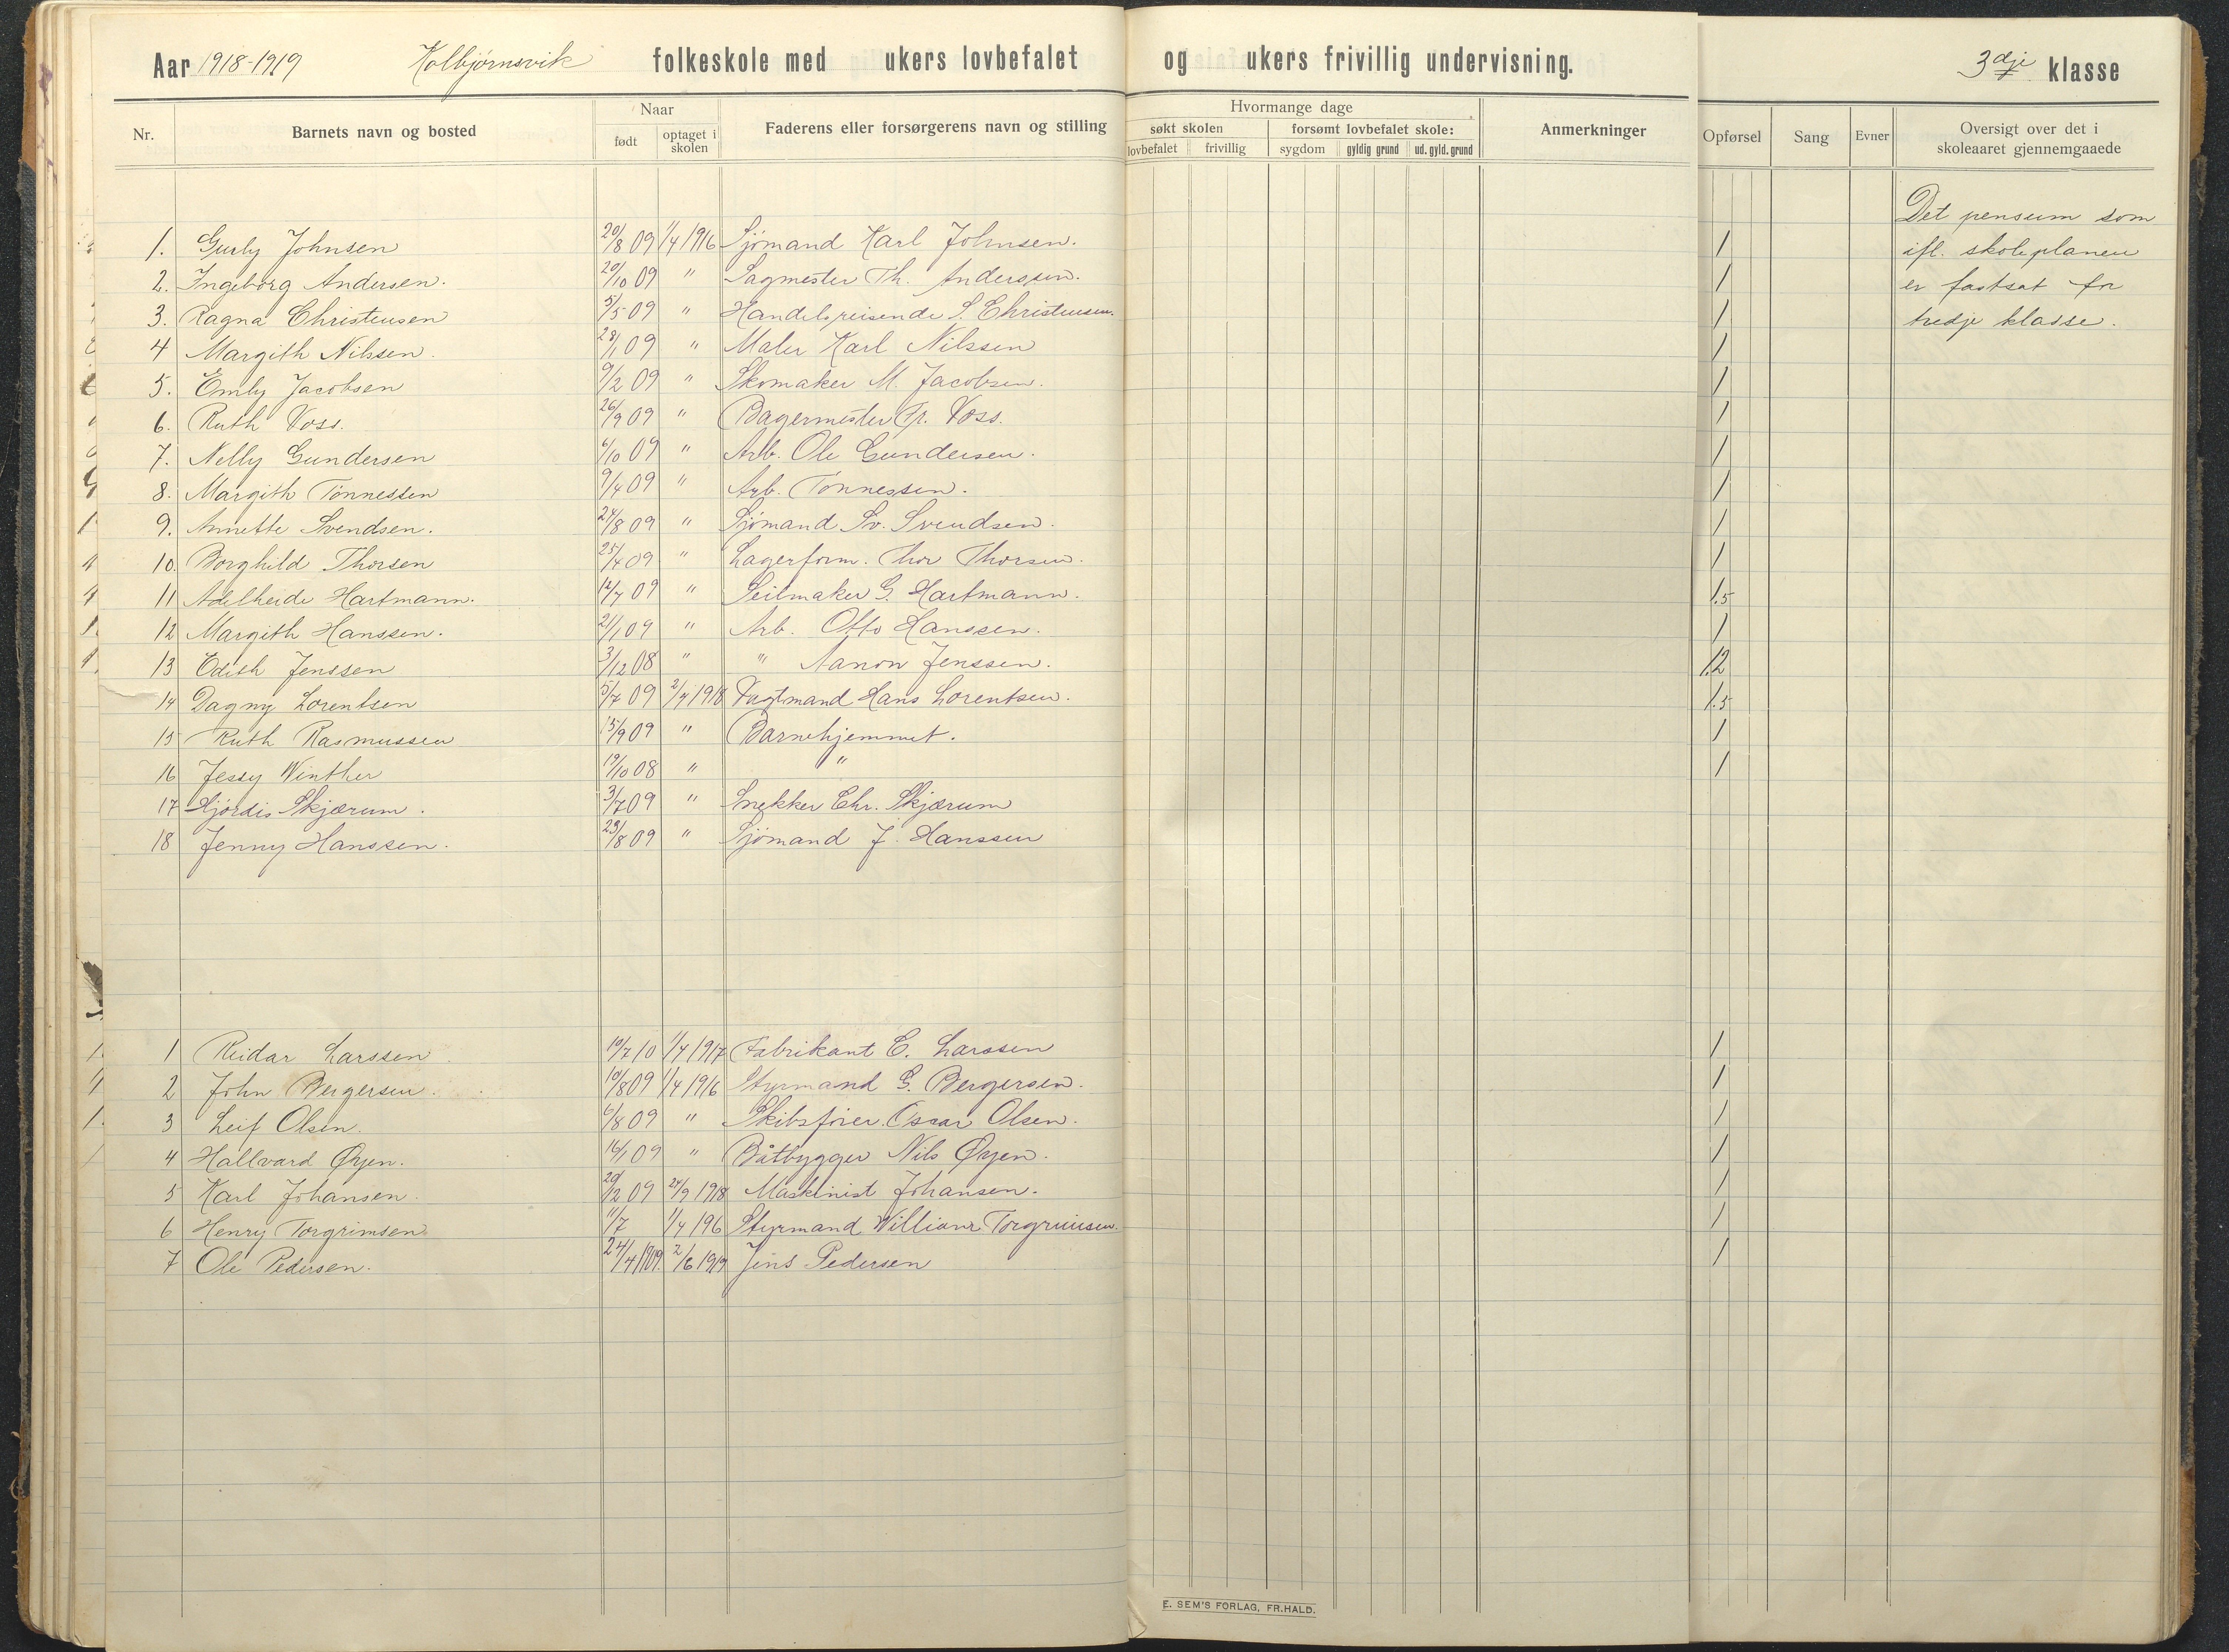 Aar 1918-1919 Kolbjørnsvik folkeskole med ukers lovbefalet og ukers frivillig undervisning. 3dje klasse
Nr. Barnets navn og bosted Naar født optaget i skolen Faderens eller forsørgerens navn og stilling Hvormange dage søkt skolen lovbefalet frivillig forsømt lovbefalet skole: sygdom gyldig grund ud. gyld. grund Anmerkninger Opførsel Sang Evner Oversigt over det i skoleaaret gjennemgaaede
Det pensum som
1. Gurly Johnsen 20/8 09 1/4 1916 Sjömand Karl Johnsen. 1 ifl. skoleplanen
2. Ingeborg Andersen. 20/10 09 " Sagmester Th. Anderssen. 1 er fastsat for
3. Ragna Christensen 5/5 09 " Handelsreisende S. Christensen. 1 tredje klasse.
4 Margith Nilssen. 28/1 09 " Maler Karl Nilssen 1
5. Emly Jacobsen 9/2 09 " Skomaker M. Jacobsen. 1
6. Ruth Voss. 26/9 09 " Bagermester Fr. Voss. 1
7. Nelly Gundersen 6/10 09 " Arb. Ole Gundersen. 1
8. Margith Tönnessen 9/4 09 " Arb. Tönnessen. 1
9. Annette Svendsen. 24/8 09 " Sjömand Sv. Svendsen. 1
10. Borghild Thorsen 25/4 09 " Lagerform. Thor Thorsen. 1
11 Adelheide Hartmann. 12/7 09 " Seilmaker G. Hartmann. 1.5
12 Margith Hanssen. 21/1 09 " Arb. Otto Hanssen. 1
13 Edith Jenssen 3/12 08 " " Aanon Jenssen. 1.2
14 Dagny Lorentsen 5/7 09 2/4 1918 Vagtmand Hans Lorentsen. 1.5
15 Ruth Rasmussen 15/9 09 " Barnehjemmet. 1
16 Jessy Winther 19/10 08 " " 1
17 Hjördis Skjærum. 3/7 09 " Snekker Chr. Skjærum
18 Jenny Hanssen. 23/8 09 " Sjömand J. Hanssen
1 Reidar Larssen 10/7 10 1/4 1917 Fabrikant C. Larssen 1
2 John Bergersen. 10/8 09 1/4 1916 Styrmand G. Bergersen. 1
3 Leif Olsen. 6/8 09 " Skibsfører Oscar Olsen. 1
4 Hallvard Øyen. 16/1 09 " Båtbygger Nils Øyen. 1
5 Karl Johansen. 29/12 09 24/9 1918 Maskinist Johansen. 1
6 Henry Torgrimsen 11/7 1/4 196 Styrmand William Torgrimsen. 1
7 Ole Pedersen. 24/4 1909. 2/6 1919 Jens Pedersen 1
E. SEM'S FORLAG, FR.HALD.